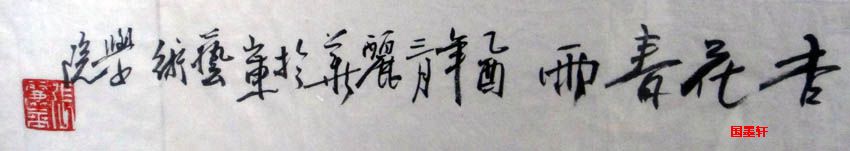 杏花春雨乙酉年三月麗華於軍藝術學院
国墨轩